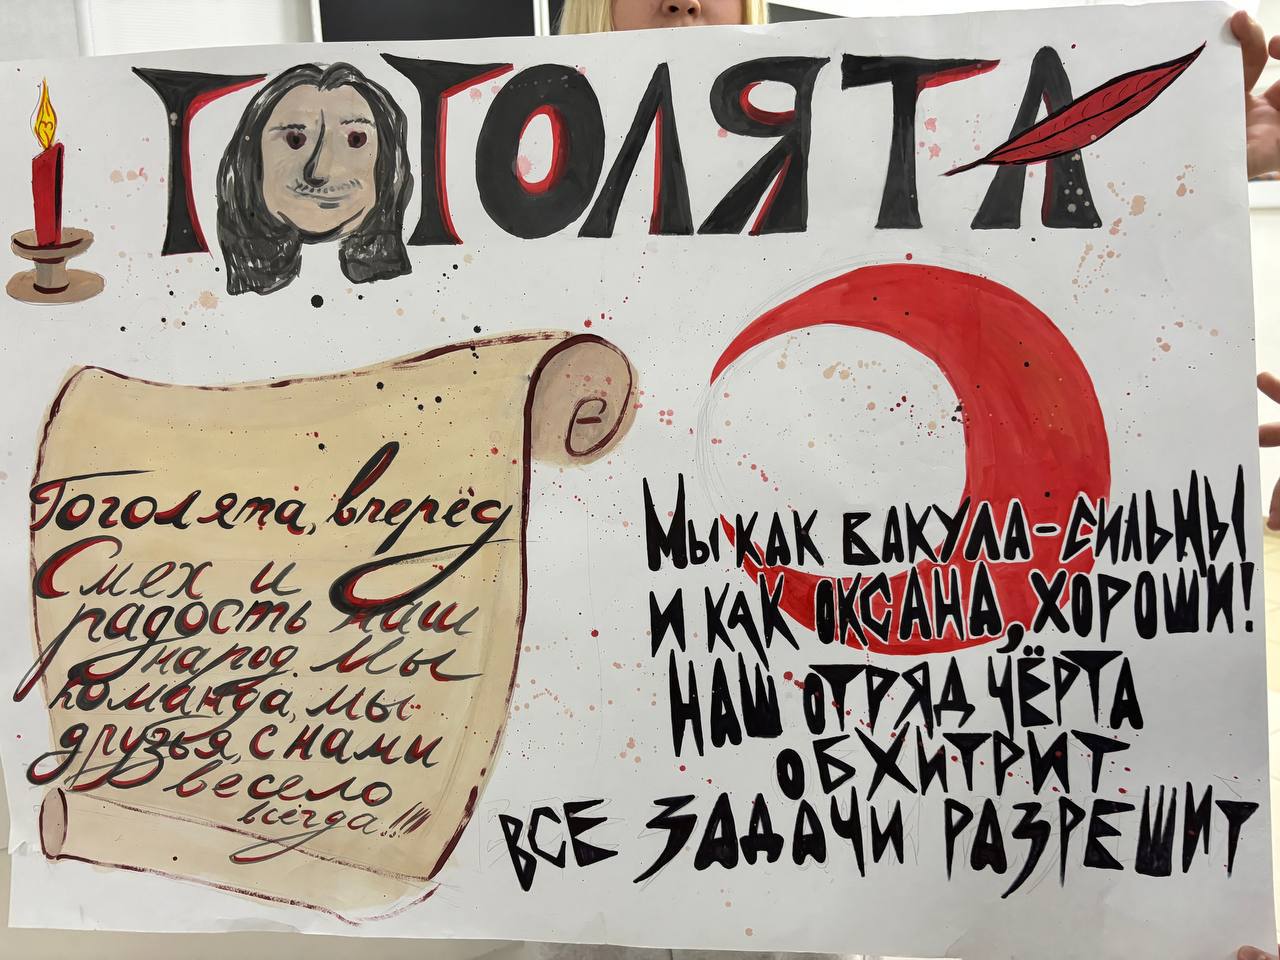 ГОГОЛЯТА
Гоголята, вперёд
Смех и
радость наш
народ. Мы
команда, мы
друзья, с нами
весело
всегда!!!
Мы как Вакула-сильны
и как Оксана, хороши!
Наш отряд чёрта
обхитрит
все задачи разрешит